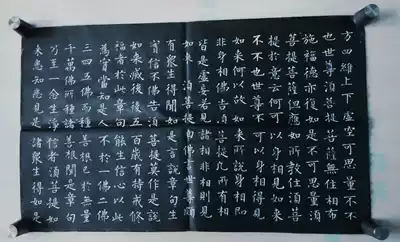 方四維上下虛空可思量不不
也世尊須菩提菩薩無住相布
施福德亦復如是不可思量須
菩提菩薩但應如所教住須菩
提於意云何可以身相見如來
不不也世尊不可以身相得見
如來何以故如來所說身相即
非身相佛告須菩提凡所有相
皆是虛妄若見諸相非相則見
如來須菩提白佛言世尊頗
有眾生得聞如是言說章句生
實信不佛告須菩提莫作是說
如來滅後後五百歲有持戒修
福者於此章句能生信心以此
為實當知是人不於一佛二佛
三四五佛而種善根已於無量
千萬佛所種諸善根聞是章句
乃至一念生淨信者須菩提如
來悉知悉見是諸眾生得如是